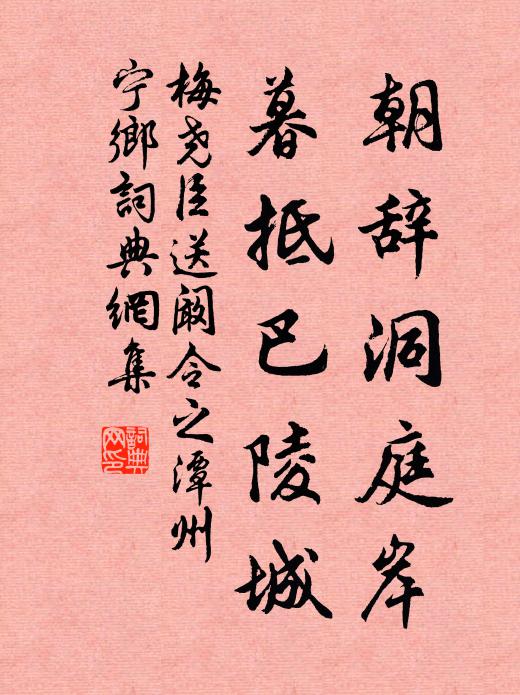 朝辞洞庭岸
暮抵巴陵城
梅尧臣送阚令之潭州
宁鄉詞典網集
詞典網印